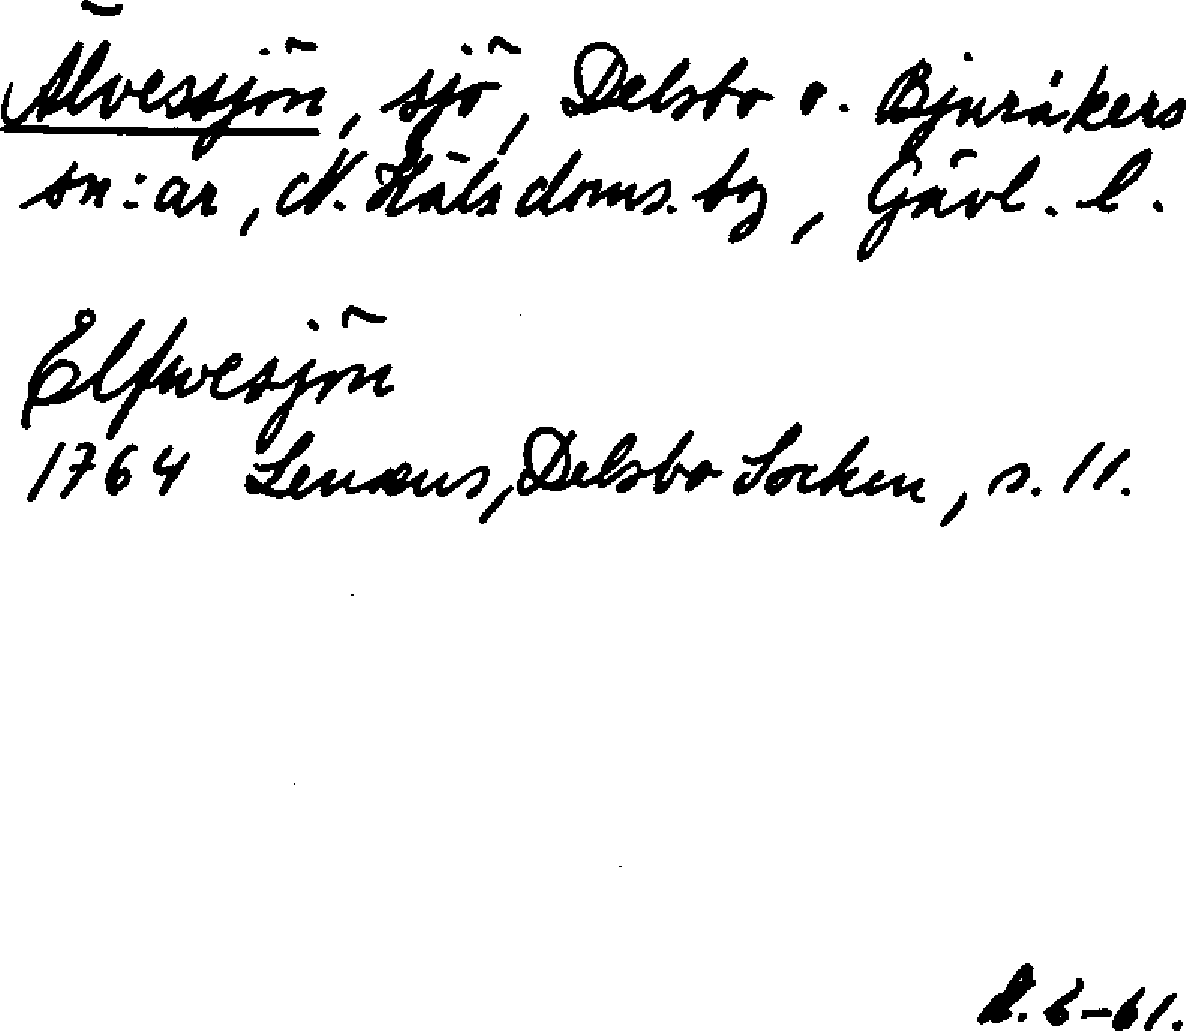 Älvessjön, sjö, Delsbo o. Bjuråkers
sn:ar, N. Häls. doms. bg, Gävl. l.
Elfwesjön
1764 Lenæus, Delsbo Socken, s. 11.
6-61.